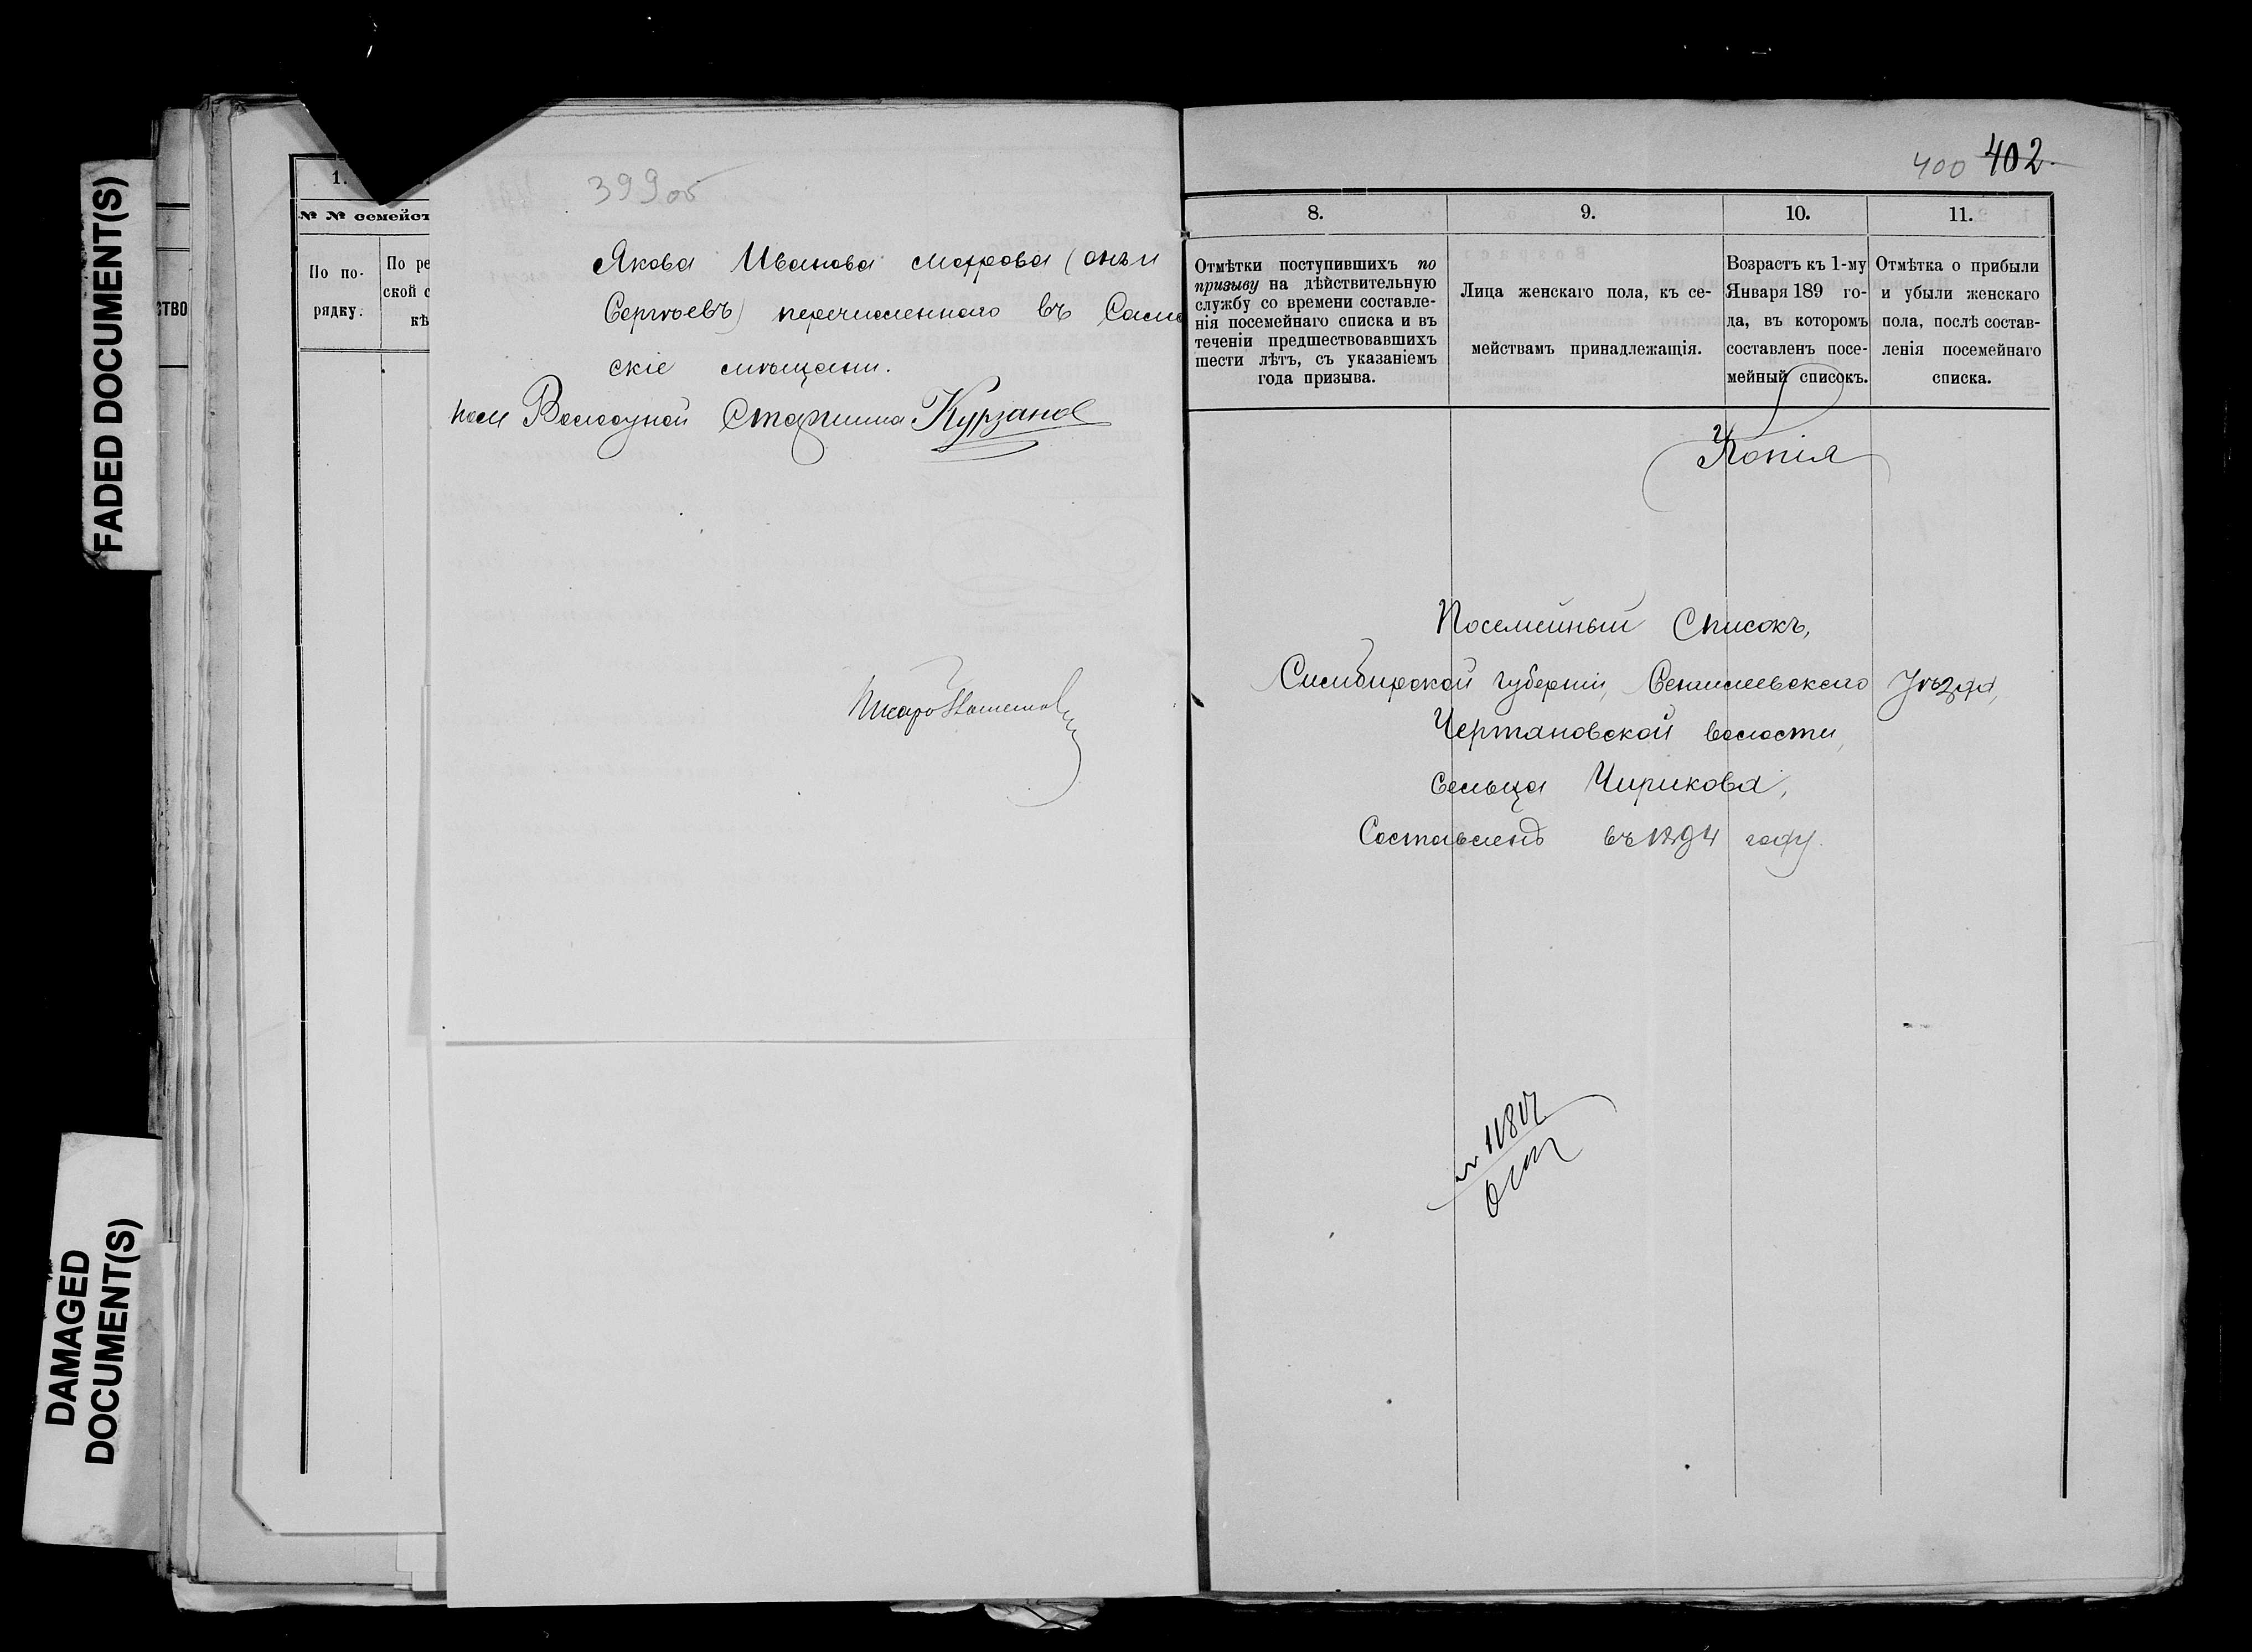 FADED DOCUMENT(S)
DAMAGED
DOCUMENT(S)
СТВО
1.
№ № семейст
По по-
рядку.
По ре
ской с
кѣ
399 об
Якова Иванова (онъ и
Сергѣевъ) перечисленнаго въ
скіе мѣщане.
Волостной Старшина Курзанов
Писарь
400 402
8.
9.
10.
11.
Отмѣтки поступившихъ по
призыву на дѣйствительную
службу со времени составле-
нія посемейнаго списка и въ
теченіи предшествовавшихъ
шести лѣтъ, съ указаніемъ
года призыва.
Лица женскаго пола, къ се-
мействамъ принадлежащія.
Возрастъ къ 1-му
Января 189 го-
да, въ которомъ
составленъ посе-
мейный списокъ.
Отмѣтка о прибыли
и убыли женскаго
пола, послѣ состав-
ленія посемейнаго
списка.
Копія
Посемейный Списокъ,
Симбирской губерніи, Сенгилеевскаго Уѣзда,
Чертановской волости,
Сельца Чирикова,
Составленъ въ 1894 году.